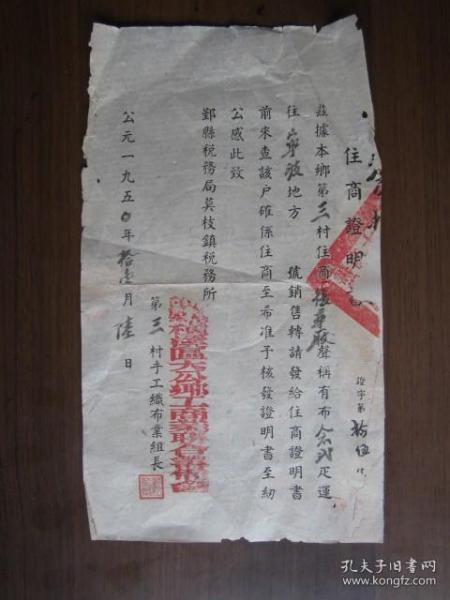 住商證明書
證字第拾伍
茲據本鄉第三村住商張華廠聲稱有布 疋運
往 地方 號銷售轉請發給住商證明書
前來查該戶確係住商至希准予核發證明書至紉
公感此致
鄞縣稅務局莫枝鎮稅務所
第三村手工織布業組長
公元一九五0年拾壹月陸日
區大公鄉工商業聯合籌備會
孔夫子旧书网
www.kongfz.com